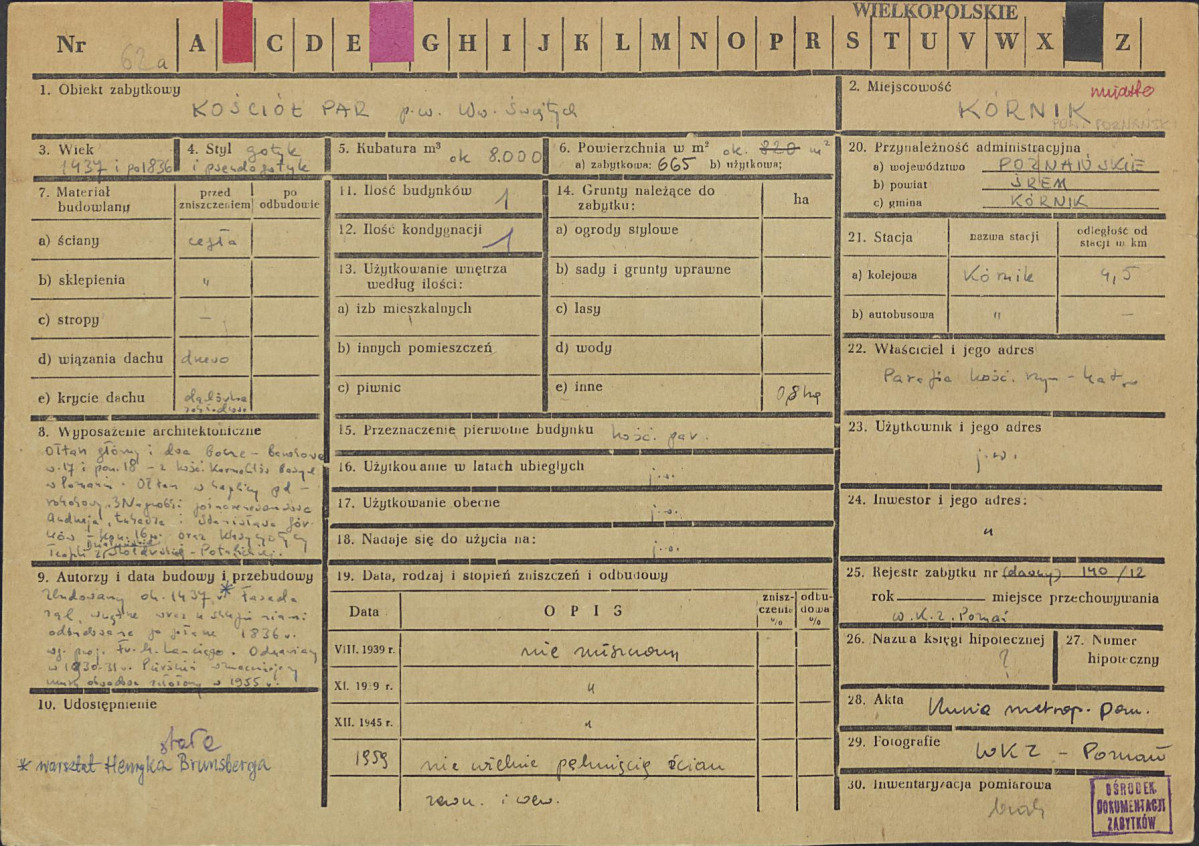 WIELKOPOLSKIE
Nr 62a A C D E G H I J K L M N O P R S T U V W X Z
1. Obiekt zabytkowy
KOŚCIÓŁ PAR p.w. Ww. Świętych
2. Miejscowość
miasto
KÓRNIK
POW. POZNAŃSKI
3. Wiek
1437 i po 1836
4. Styl gotyk
i pseudogotyk
5. Kubatura m³
ok 8.000
6. Powierzchnia w m² ok. 820 m²
a) zabytkowa: 665 b) użytkowa;
20. Przynależność administracyjna
a) województwo POZNAŃSKIE
b) powiat ŚREM
c) gmina KÓRNIK
7. Materiał budowlany
przed zniszczeniem
po odbudowie
a) ściany cegła
b) sklepienia "
c) stropy –
d) wiązania dachu drewno
e) krycie dachu dachówka
11. Ilość budynków 1
12. Ilość kondygnacji 1
13. Użytkowanie wnętrza
według ilości:
a) izb mieszkalnych
b) innych pomieszczeń
c) piwnic
14. Grunty należące do
zabytku: ha
a) ogrody stylowe
b) sady i grunty uprawne
c) lasy
d) wody
e) inne 0,8 ha
21. Stacja nazwa stacji odległość od stacji w km
a) kolejowa Kórnik 4,5
b) autobusowa " –
22. Właściciel i jego adres
Parafia kość. rzym-kat.
23. Użytkownik i jego adres
j.w.
24. Inwestor i jego adres:
"
8. Wyposażenie architektoniczne
Ołtarz główny i dwa boczne – barokowe
w. 17 i pocz. 18 – z kość. Karmelitów Bosych
w Poznaniu. Ołtarz w kaplicy pd –
rokokowy. 3 Nagrobki
Andrzeja, Łukasza i Stanisława Gór-
ków – kon. 16 w. oraz klasycystyczny
Teofili z Działyńskich Szołdrskiej – Potulickiej.
15. Przeznaczenie pierwotne budynku kość. par.
16. Użytkowanie w latach ubiegłych j.w.
17. Użytkowanie obecne j.w.
18. Nadaje się do użycia na: j.w.
9. Autorzy i data budowy i przebudowy
Zbudowany ok. 1437 r.* Fasada
zach. wnętrze wraz ze sklepieniami
odbudowane po pożarze 1836 r.
wg. proj. Fr. M. Lanciego. Odnawiany
w 1930-31 r. Pierścień wzmacniający
mury obwodowe założony w 1955 r.
10. Udostępnienie
stałe
* warsztat Henryka Brunsberga
19. Data, rodzaj i stopień zniszczeń i odbudowy
Data OPIS zniszczenie % odbudowa %
VIII. 1939 r. nie niszczony
XI. 1939 r. "
XII. 1945 r. "
1959 nie wielkie pęknięcia ścian
zewn. i wew.
25. Rejestr zabytku nr (dawny) 140/12
rok miejsce przechowywania
W.K.Z. Poznań
26. Nazwa księgi hipotecznej
?
27. Numer
hipoteczny
28. Akta Kuria metrop. Pozn.
29. Fotografie WKZ – Poznań
30. Inwentaryzacja pomiarowa
brak
OŚRODEK
DOKUMENTACJI
ZABYTKÓW